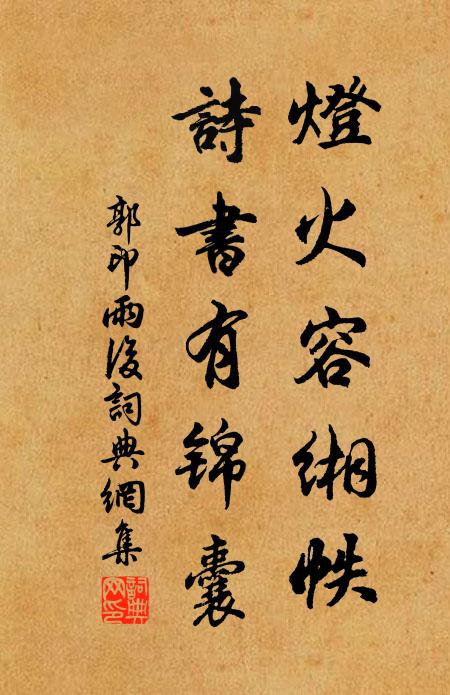 燈火容緗帙
詩書有锦囊
郭印雨後詞典網集
詞典網印